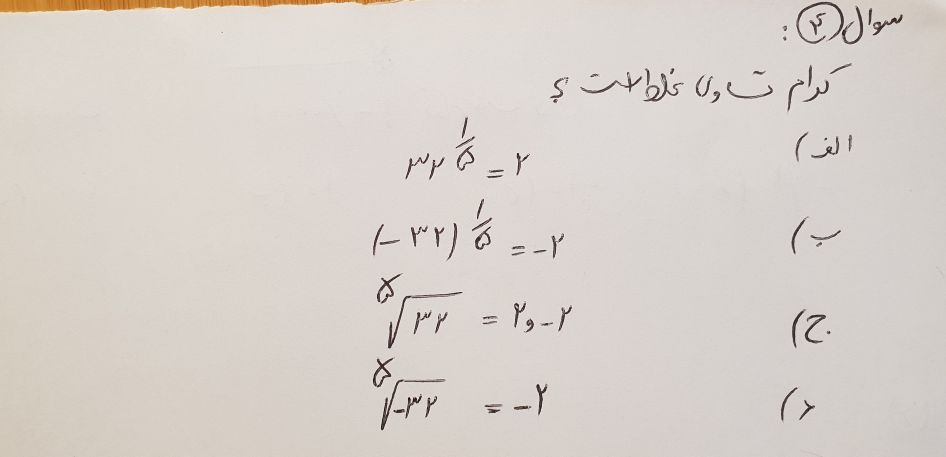 سوال ۴:
کدام تساوی غلط است؟
الف) ۳۲^۱/۵ = ۲
ب) (-۳۲)^۱/۵ = -۲
ج) ⁵√۳۲ = ۲ و -۲
د) ⁵√-۳۲ = -۲